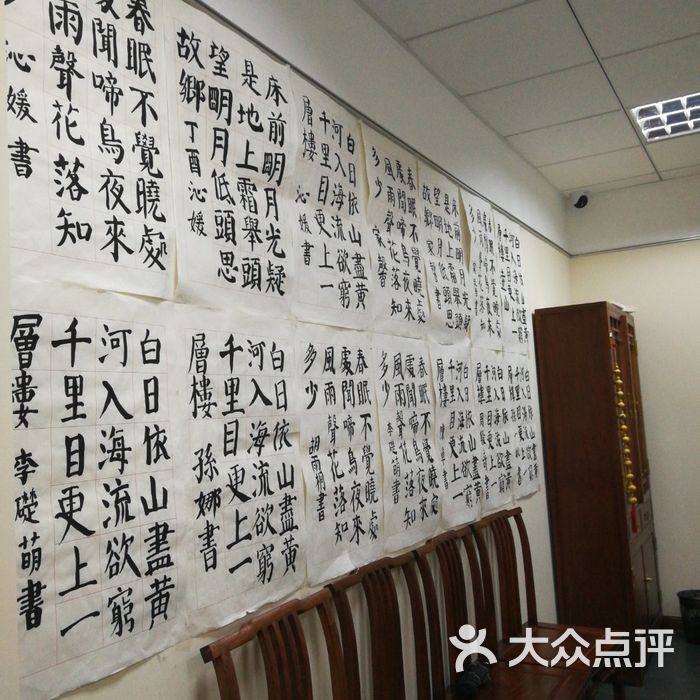 春眠不覺曉處
處聞啼鳥夜來
雨聲花落知
沁媛書
床前明月光疑
是地上霜舉頭
望明月低頭思
故鄉 丁酉沁媛
白日依山盡黃
河入海流欲窮
千里目更上一
層樓 沁媛書
春眠不覺曉處
處聞啼鳥夜來
風雨聲花落知
多少 家馨
床前明月光疑
是地上霜舉頭
望明月低頭思
故鄉 家馨書
白日依山盡黃
河入海流欲窮
千里目更上一
白日依山盡黃
河入海流欲窮
千里目更上一
層樓 李礎萌書
白日依山盡黃
河入海流欲窮
千里目更上一
層樓 孫娜書
春眠不覺曉處
處聞啼鳥夜來
風雨聲花落知
多少 胡雨桐書
春眠不覺曉處
處聞啼鳥夜來
風雨聲花落知
白日依山盡黃
河入海流欲窮
千里目更上一
層樓
大众点评